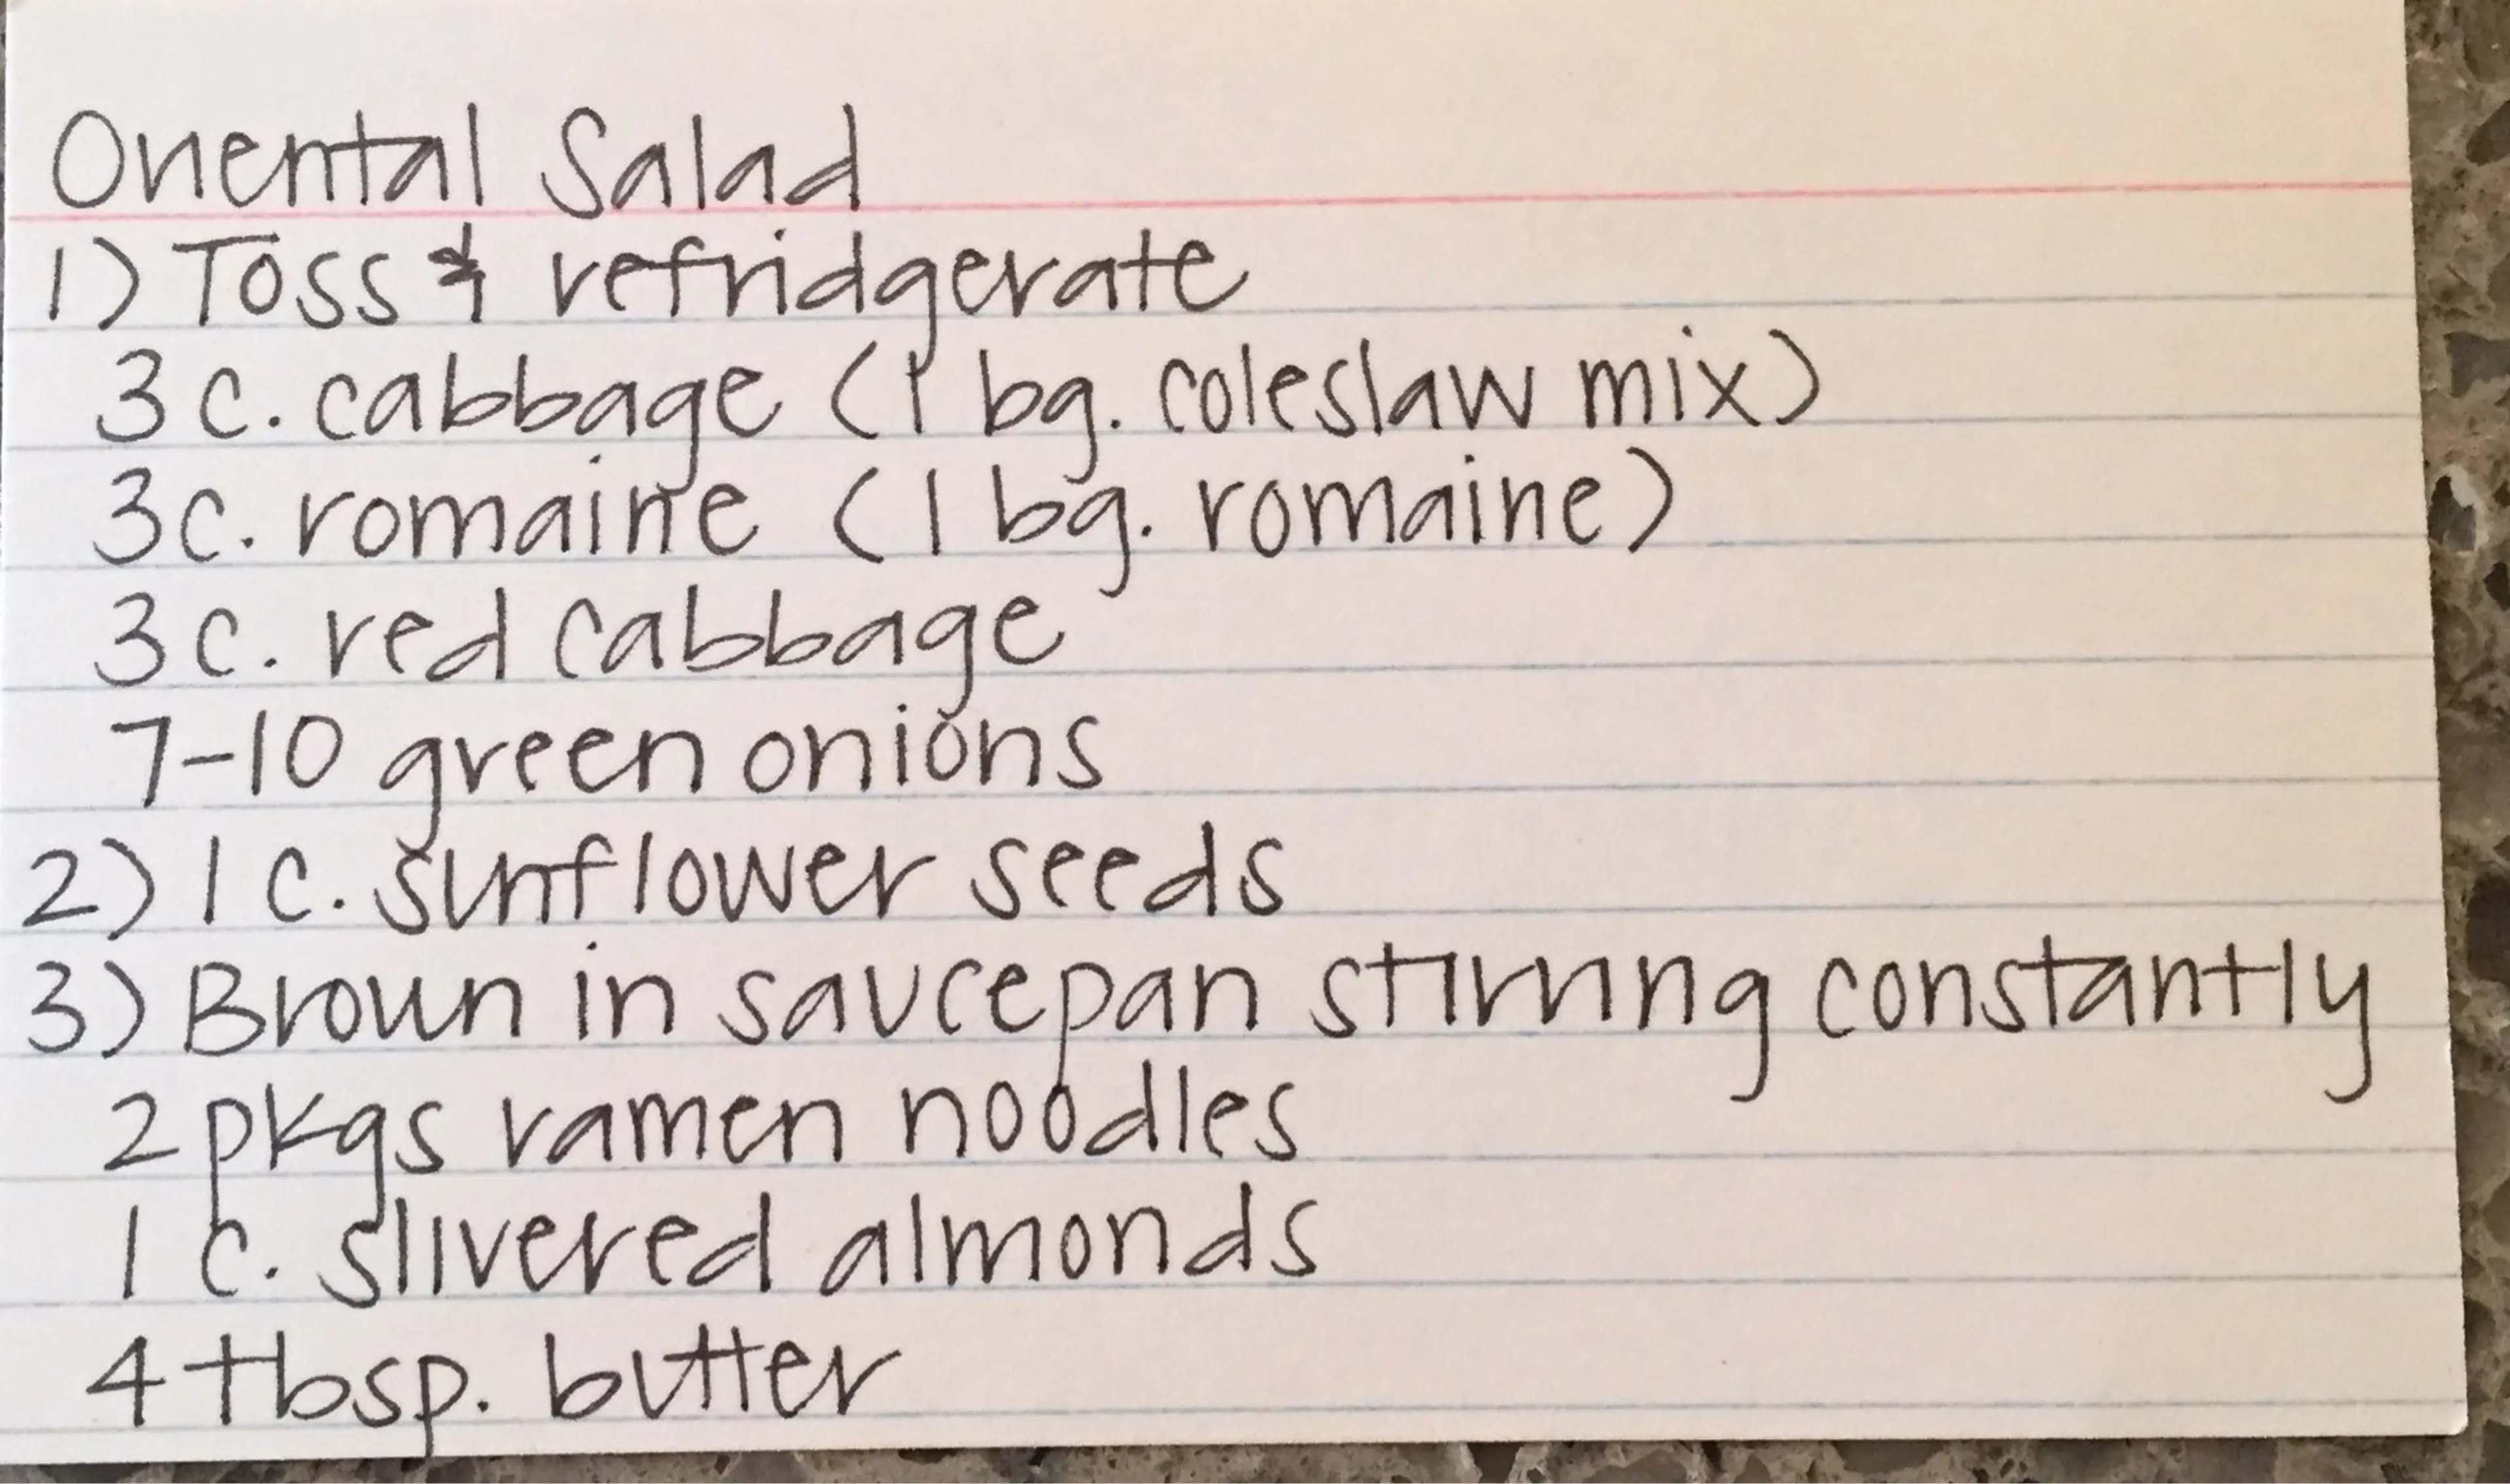 Oriental Salad
1) Toss & refridgerate
3 c. cabbage (1 bg. coleslaw mix)
3 c. romaine (1 bg. romaine)
3 c. red cabbage
7-10 green onions
2) 1 c. sunflower seeds
3) Brown in saucepan stirring constantly
2 pkgs ramen noodles
1 c. slivered almonds
4 tbsp. butter